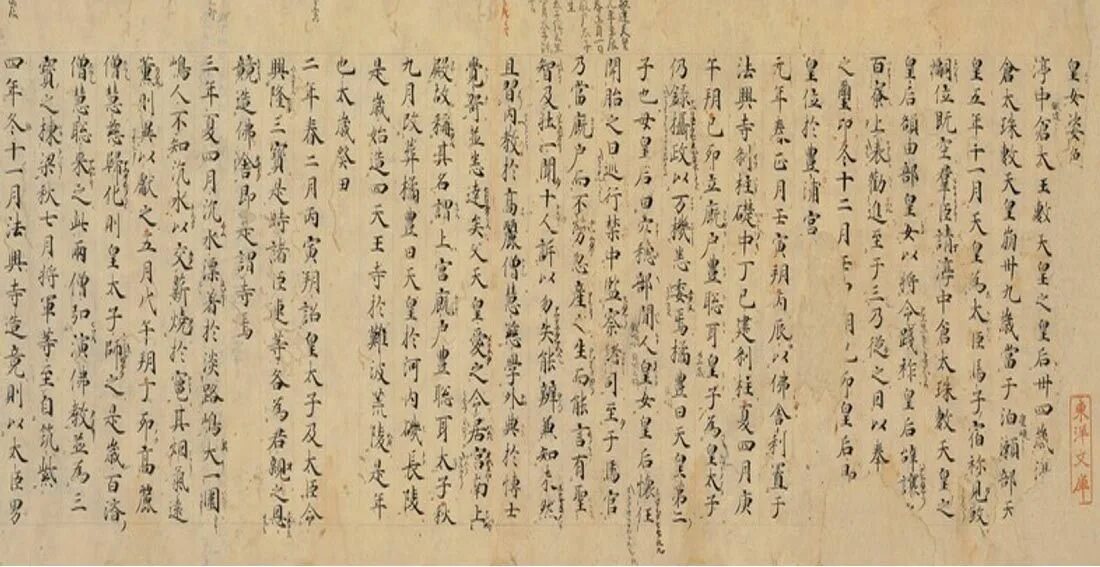 皇女姿色
渟中倉太玉敷天皇之皇后卅四歳渟
倉太珠敷天皇崩卅九歳當于泊瀬部天
皇五年十一月天皇為大臣馬子宿祢見殺
嗣位既空羣臣請渟中倉太珠敷天皇之
皇后額田部皇女以将令踐祚皇后辞讓
百寮上表勸進至于三乃従之因以奉
之璽印冬十二月壬 朔己卯皇后即
皇位於豊浦宮
元年春正月壬寅朔丙辰以佛舎利置于
法興寺刹柱礎中丁巳建刹柱夏四月庚
午朔己卯立厩戸豊聡耳皇子為皇太子
仍録攝政以万機悉委焉橘豊日天皇第二
子也母皇后曰穴穂部間人皇女皇后懐任
開胎之日巡行禁中監察諸司至于馬官
乃當厩戸而不労忽産之生而能言有聖
智及壮一聞十人訴以勿失能辨兼知未然
且習内教於高麗僧慧慈學外典於博士
覺哿並悉達矣父天皇愛之令居宮南上
殿故稱其名謂上宮厩戸豊聡耳太子秋
九月改葬橘豊日天皇於河内磯長陵
是歳始造四天王寺於難波荒陵是年
也太歳癸丑
二年春二月丙寅朔詔皇太子及大臣令
興隆三寳是時諸臣連等各為君親之恩
競造佛舎即是謂寺焉
三年夏四月沉水漂着於淡路嶋大一圍
嶋人不知沉水以交薪燒於竈其烟氣遠
薫則異以獻之五月戊午朔丁卯高麗
僧慧慈歸化則皇太子師之是歳百済
僧慧聡来之此兩僧弘演佛教並為三
寳之棟梁秋七月将軍等至自筑紫
四年冬十一月法興寺造竟則以大臣男
東洋文庫